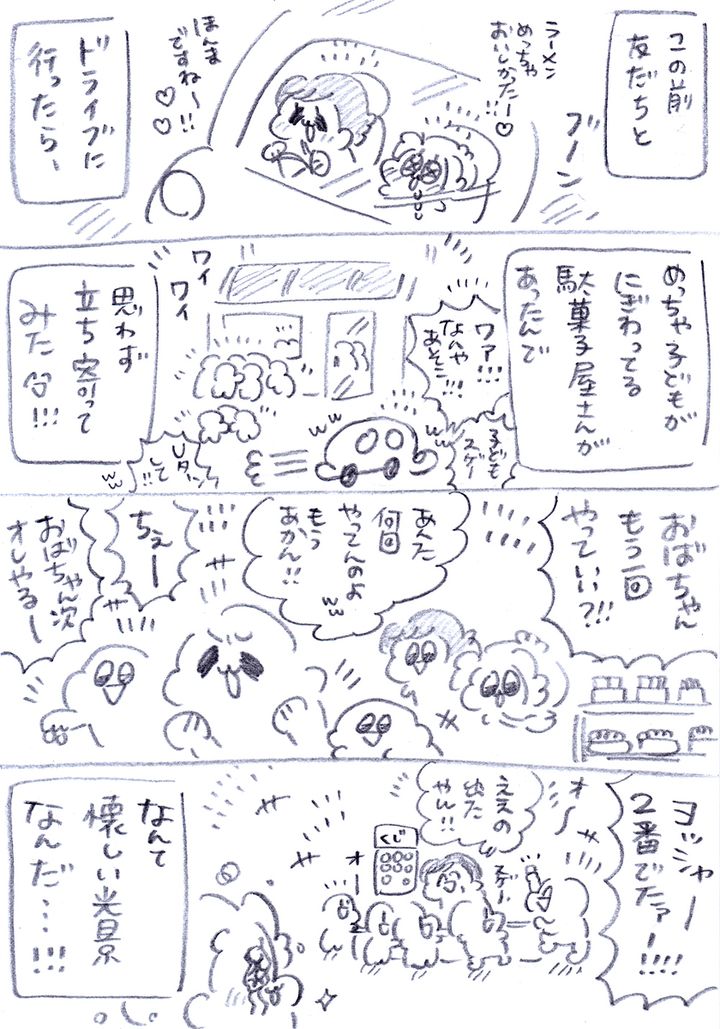 この前
友だちと
ブーン
ラーメン
めっちゃ
おいしかったー!!♡
ほんま
ですね〜!!
♡♡
ドライブに
行ったらー
めっちゃ子どもが
にぎわってる
駄菓子屋さんが
あったんで
ワァ!!!
なんや
あそこ!!!
子ども
スゲー
ワイ
ワイ
ww
Uターン
して!!
ww
思わず
立ち寄って
みた㕣!!!
おばちゃん
もう一回
やっていい?!!
あんた
何回
やってんのよ
もう
あかん!!
ww
ちぇー
おばちゃん次
オレやるー
ヨッシャー
2番でたァー!!!!
オー
ええの
出た
やん!!
スゲー
くじ
オー
なんて
懐しい光景
なんだ…!!!